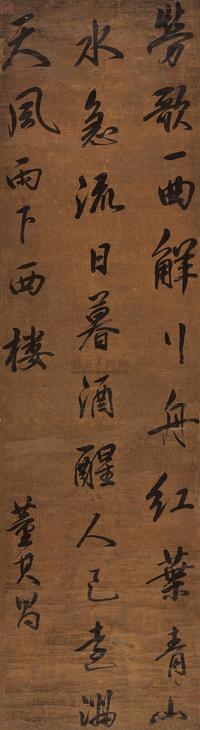 勞歌一曲解行舟紅葉青山
水急流日暮酒醒人已遠滿
天風雨下西樓
董其昌